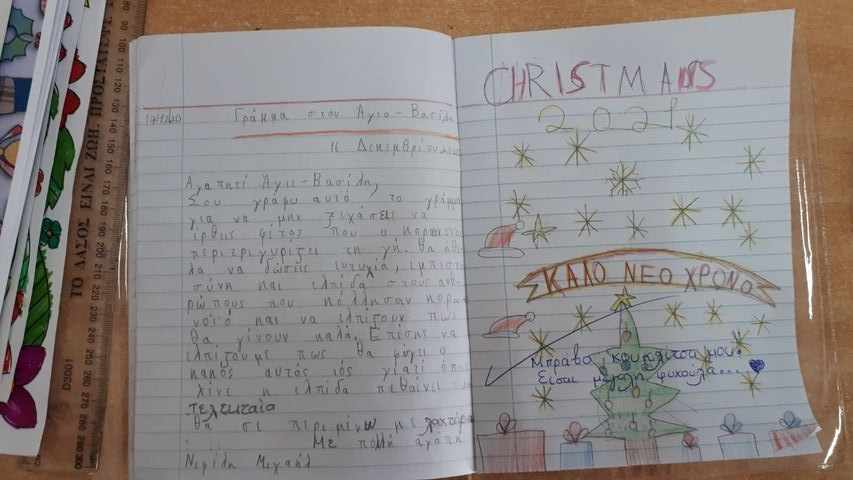 ΤΟ ΔΑΣΟΣ ΕΙΝΑΙ ΖΩΗ. ΠΡΟΣΤΑΤΕΨ
Γράμμα στον Άγιο-Βασίλη
Αγαπητέ Άγιε-Βασίλη,
Σου γράφω αυτό το γράμμα
για να μην ξεχάσεις να
έρθεις φέτος που ο κορω
περιτριγυρίζει τη γη. Θα
λα να δώσεις ευτυχία, εμπιστο
σύνη και ελπίδα στους αν
ρώπους που κόλλησαν κορω
νοϊό και να ελπίζουν πως
θα γίνουν καλά. Επίσης να
ελπίζουμε πως θα φύγει ο
κακός αυτός ιός γιατί όπ
λένε η ελπίδα πεθαίνει
τελευταία
Θα σε περιμένω με λαχτάρα
Με πολλή αγάπη
CHRISTMAS
2021
ΚΑΛΟ ΝΕΟ ΧΡΟΝΟ
Μπράβο κουκλίτσα μου!
Είσαι μεγάλη ψυχούλα...